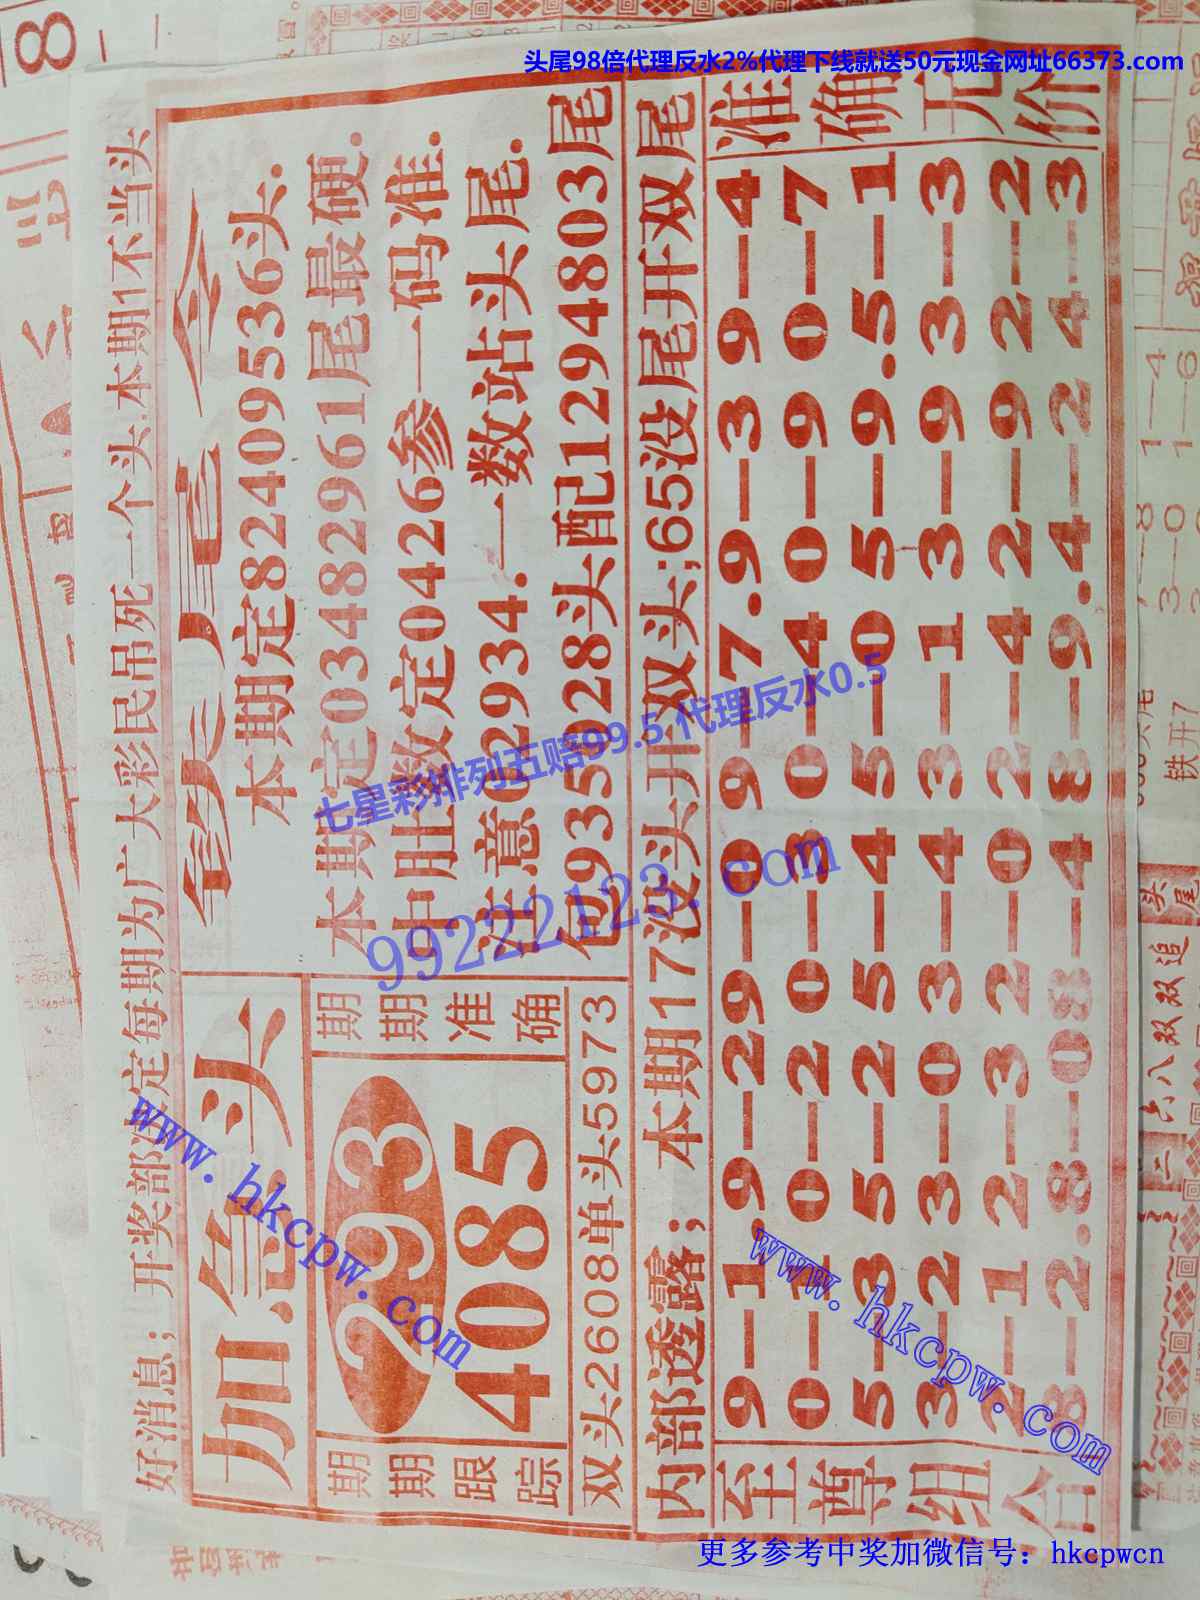 头尾98倍代理反水2%代理下线就送50元现金网址66373.com
好消息;开奖部决定每期为广大彩民吊死一个头.本期1不当头
加急头
期期跟踪
293
4085
期期准确
双头2608单头5973
本期定82409536头.
本期定03482961尾最硬.
中肚数定0426参一码准.
注意02934.一数站头尾.
包935028头配1294803尾
内部透露; 本期17没头开双头;65没尾开双尾
至尊组合
准确无价
9—1.9—29—09—7.9—39—4
0—10—20—30—40—90—7
5—35—25—45—05—9.5—1
3—23—03—43—13—93—3
2—12—32—02—42—92—2
8—2.8—08—48—9.4—24—3
七星彩排列五赔99.5 代理反水0.5
99222123.com
www.hkcpw.com
www.hkcpw.com
六八双双追
头尾
铁开7
更多参考中奖加微信号：hkcpwcn